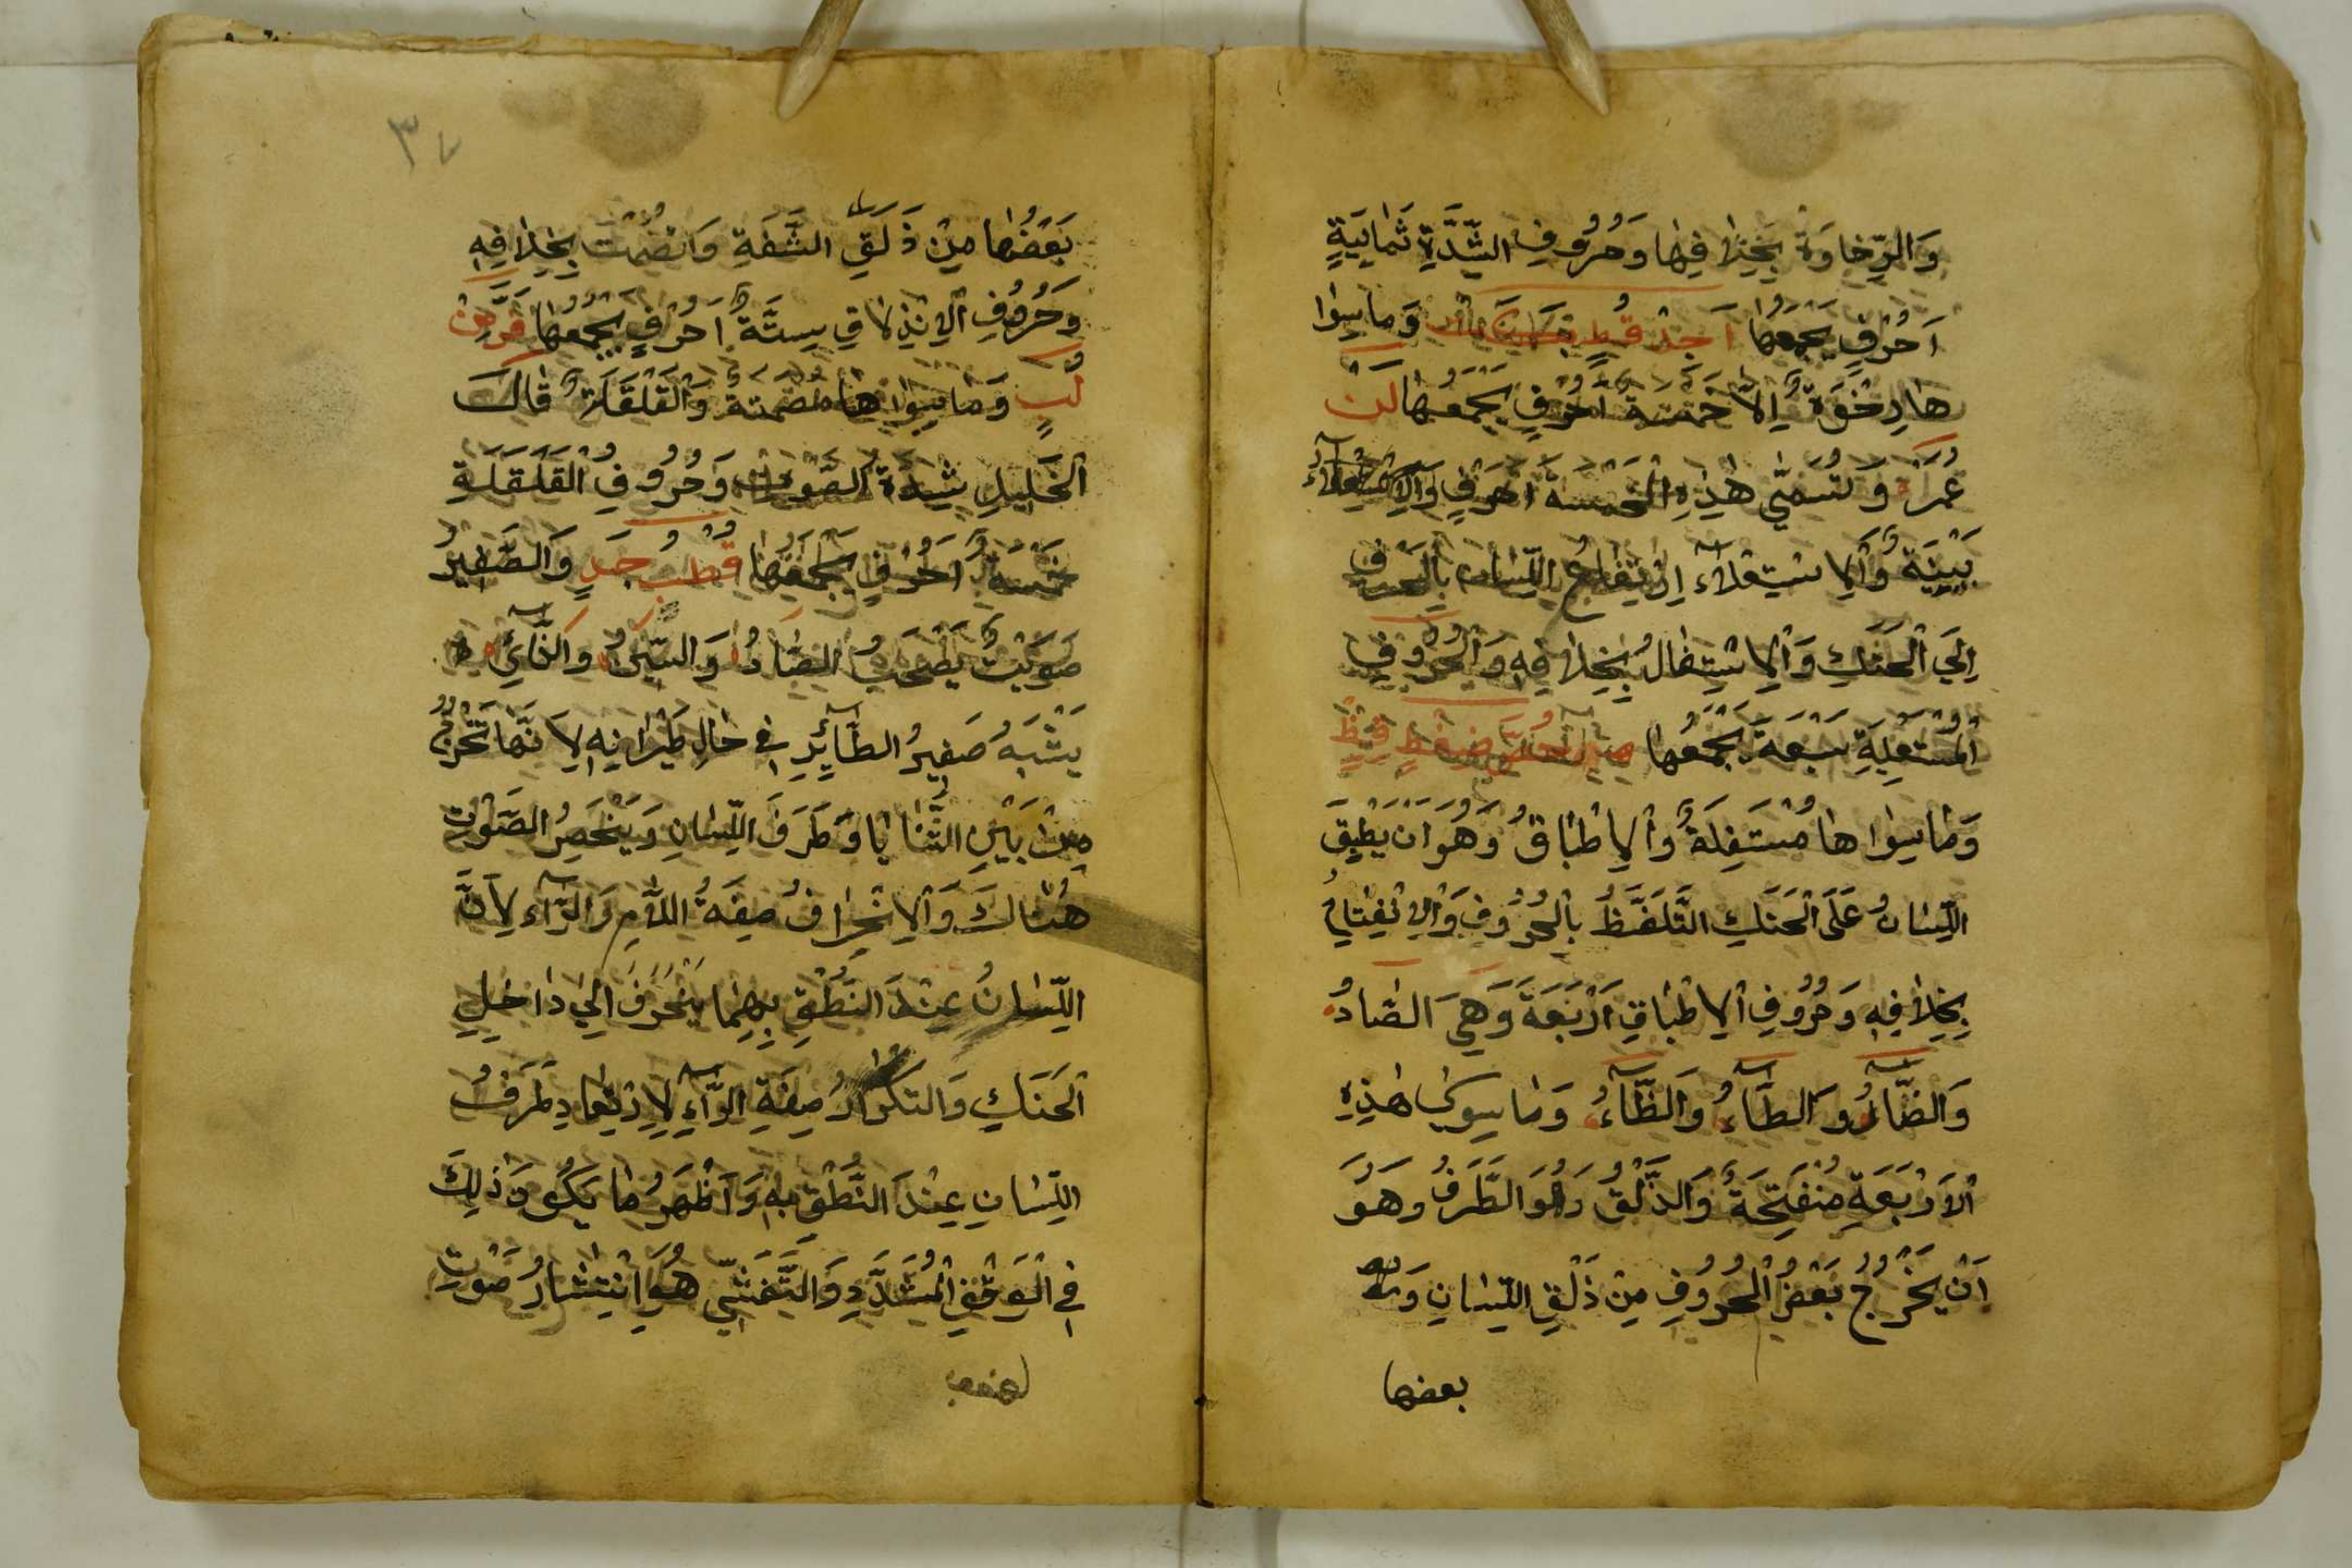 وَالرِّخَاوَة بِخِلَافِهَا وَحُرُوفِ الشِّدَّةِ ثَمَانِيَةٍ
اَحْرُفٍ يَجْمَعُهَا اَجِدْ قُطٍ بَكَتْ وَمَا سِوَا
هَا رِخْوَةٌ اِلَّا خَمْسَةَ اَحْرُفٍ يَجْمَعُهَا لَنْ
عُمَرَ وَتُسَمّٰى هٰذِهِ الْخَمْسَةُ اَحْرُفٍ
بَيْنِيَّةٌ وَالْاِسْتِعْلَاءُ اِرْتِفَاعُ اللِّسَانِ بِالْحَرْفِ
اِلَى الْحَنَكِ وَالْاِسْتِفَالُ بِخِلَافِهِ وَالْحُرُوفِ
الْمُسْتَعْلِيَةِ سَبْعَةَ يَجْمَعُهَا خُصَّ ضَغْطٍ قِظْ
وَمَا سِوَاهَا مُسْتَفِلَةٌ وَالْاِطْبَاقُ وَهُوَ اَنْ يُطْبِقَ
اللِّسَانُ عَلَى الْحَنَكِ التَّلَفُّظُ بِالْحُرُوفِ وَالْاِنْفِتَاحُ
بِخِلَافِهِ وَحُرُوفِ الْاِطْبَاقِ اَرْبَعَةَ وَهِيَ الصَّادُ
وَالضَّادُ وَالطَّاءُ وَالظَّاءُ وَمَا سِوٰى هٰذِهِ
الْاَرْبَعَةِ مُنْفَتِحَةٌ وَالذَّلْقُ وَهُوَ الطَّرَفُ وَهُوَ
اَنْ يَخْرُجُ بَعْضُ الْحُرُوفِ مِنْ ذَلْقِ اللِّسَانِ وَ
بعضها
٣٧
بَعْضُهَا مِنْ ذَلَقِ الشَّفَةِ وَاَصْمَتَ بِخِلَافِهِ
وَحُرُوفِ الْاِنْذِلَاقِ سِتَّةُ اَحْرُفٍ يَجْمَعُهَا فَرَّ مِنْ
لُبٍّ وَمَا سِوَاهَا مُصْمَتَةٌ وَالْقَلْقَلَةُ قَالَ
الْخَلِيلِ شِدَّةُ الصَّوْتِ وَحُرُوفُ الْقَلْقَلَةِ
خَمْسَةُ اَحْرُفٍ يَجْمَعُهَا قُطْبُ جَدٍ وَالصَّفِيرُ
صَوْتٌ يَصْحَبُ الصَّادُ وَالسِّينُ وَالزَّائِ
يَشْبَهُ صَفِيرُ الطَّائِرِ فِي حَالِ طَيَرَانِهِ لِاَنَّهَا تَخْرُجُ
مِنْ بَيْنِ الثَّنَايَا وَطَرَفَ اللِّسَانِ وَيَنْحَصِرُ الصَّوْتِ
هُنَاكَ وَالْاِنْحِرَافُ صِفَةُ اللَّامِ وَالرَّاءِ لِاَنَّ
اللِّسَانُ عِنْدَ النُّطْقِ بِهِمَا يَنْحَرَفُ اِلٰى دَاخِلِ
الْحَنَكِ وَالتَّكْرَارُ صِفَةِ الرَّاءِ لِاِرْتِعَادِ طَرَفُ
اللِّسَانِ عِنْدَ النُّطْقِ بِهِ وَاَظْهَرُ مَا يَكُونُ ذٰلِكَ
فِي الْوَقْفِ الْمُشَدَّدِ وَالتَّفَشِّي هُوَ اِنْتِشَارُ صَوْتِ